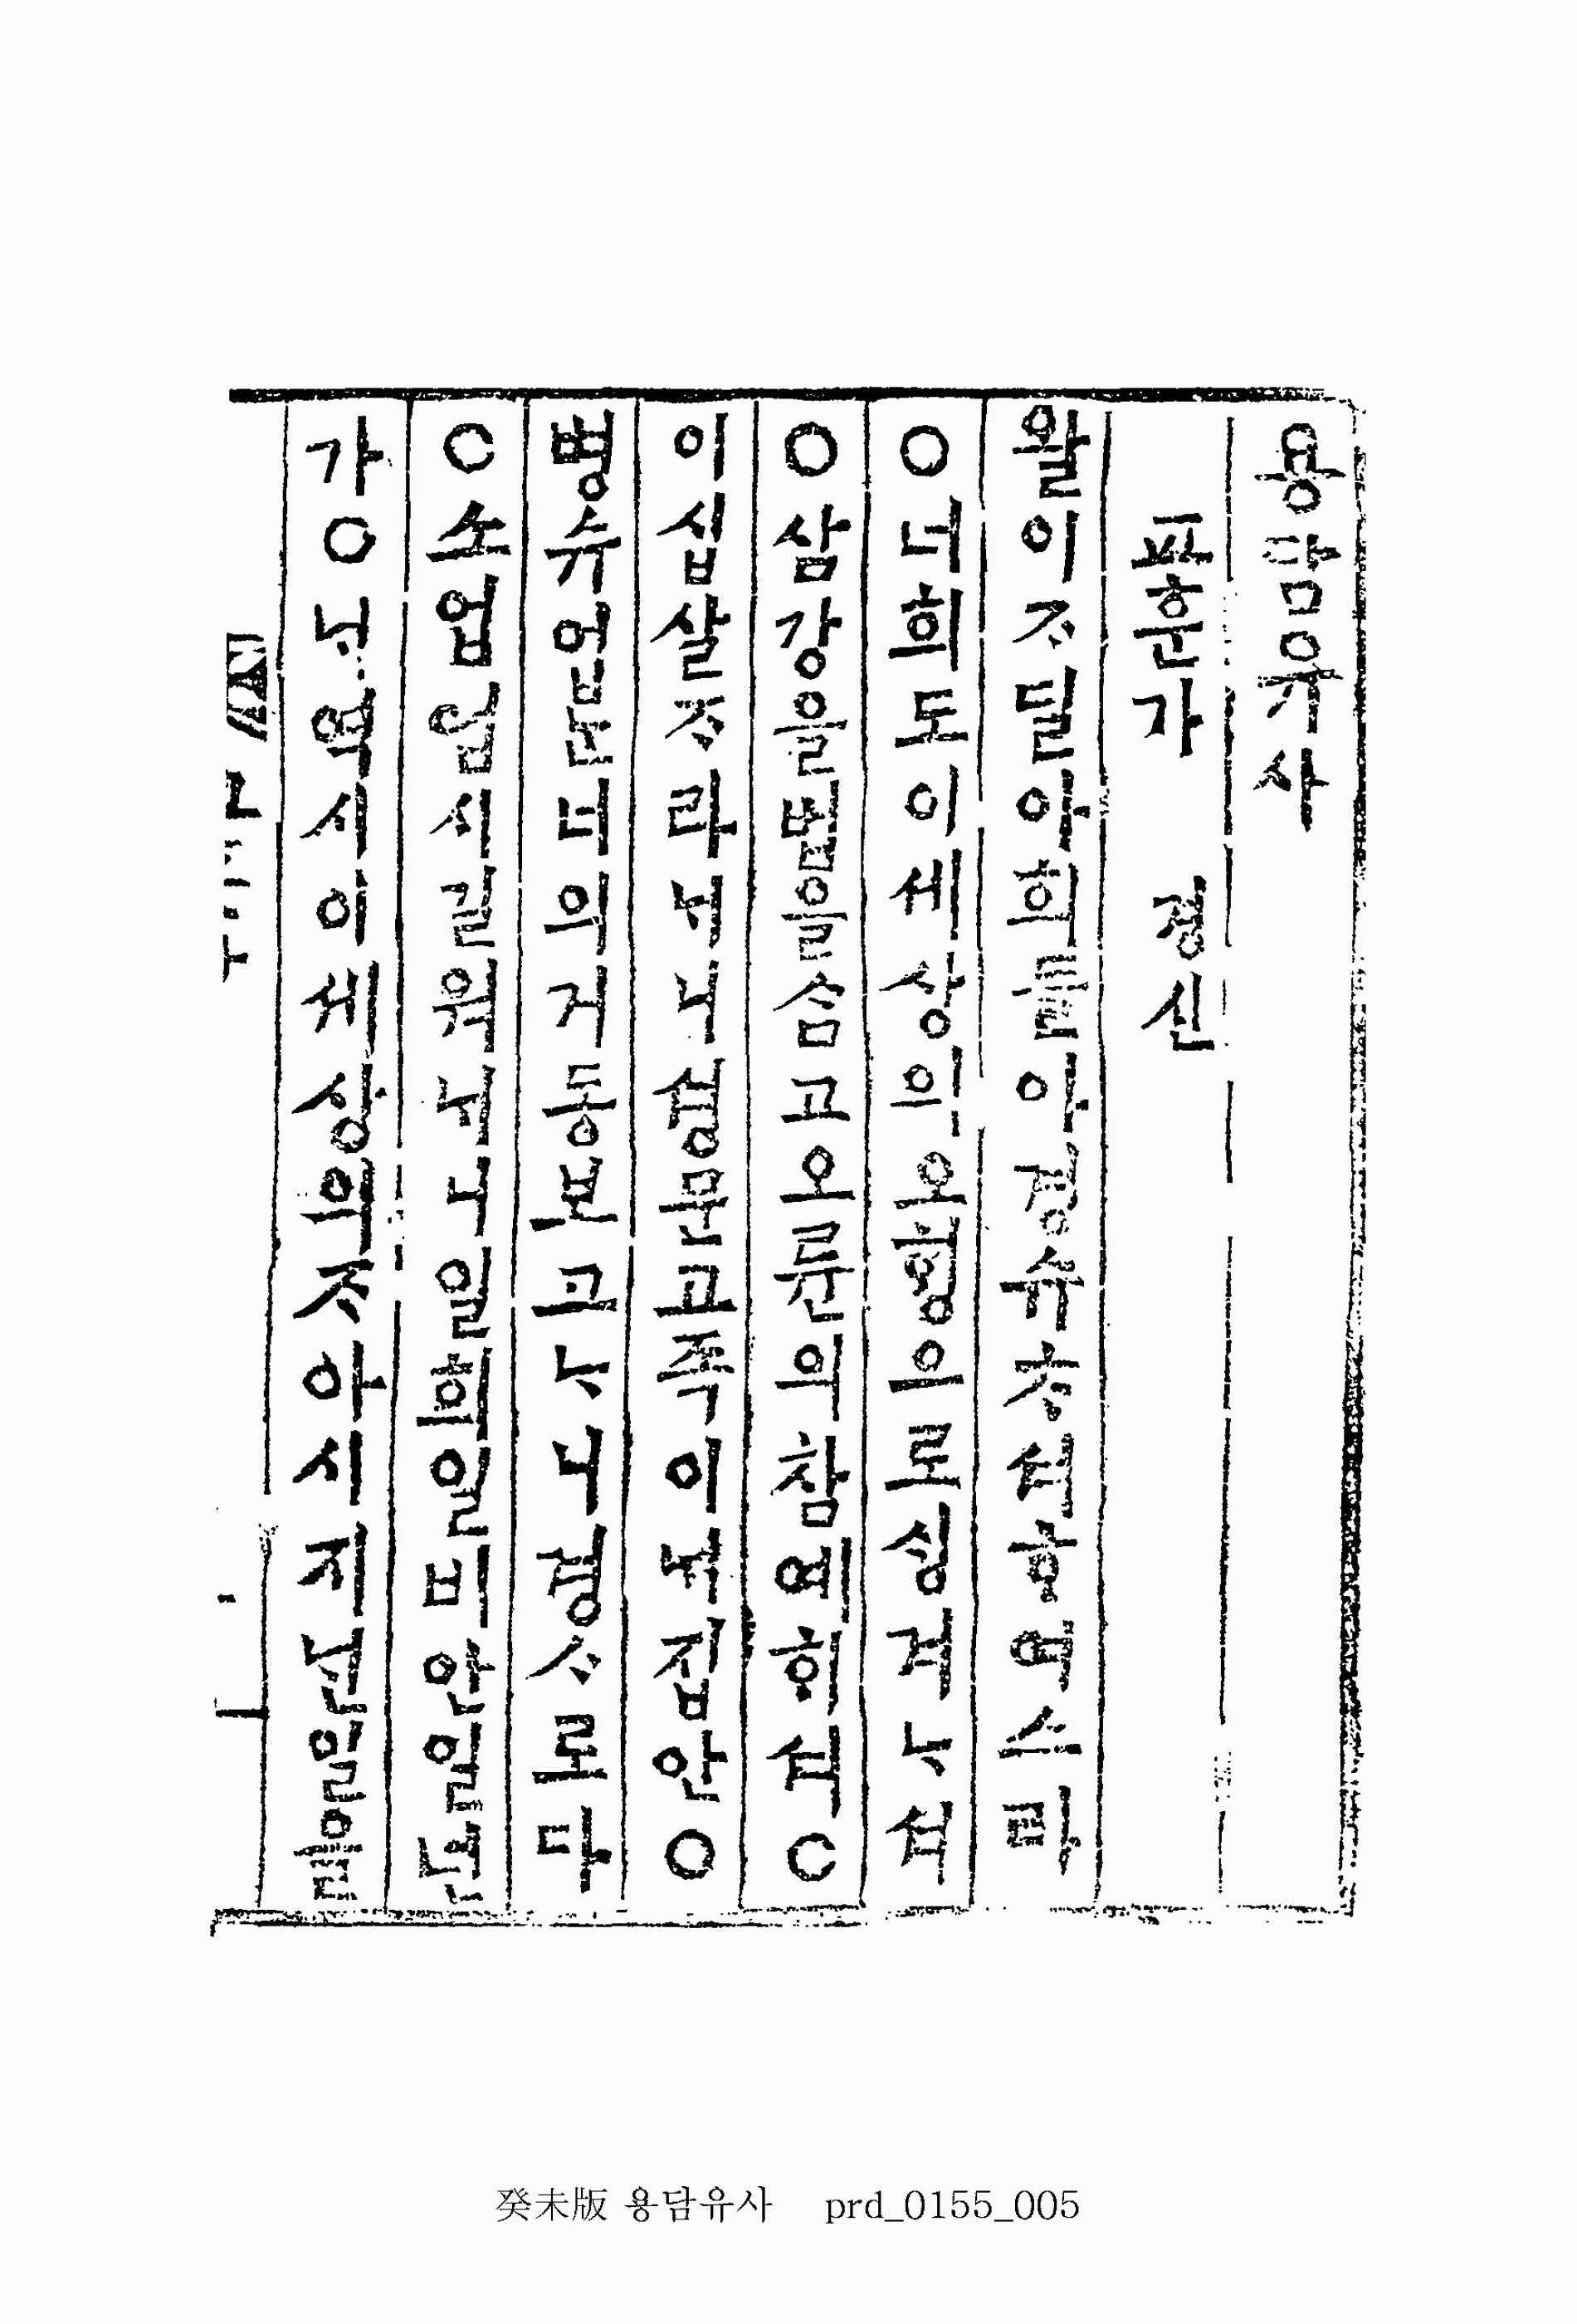 용담유사
교훈가 경신
왈이ᄌᆞ딜아희들아경슈ᄎᆞ셔ᄒᆞ여스라
○너희도이세상의오ᄒᆡᆼ으로ᄉᆡᆼ겨ᄂᆞ셔
○삼강을법을ᄉᆞᆷ고오륜의참예ᄒᆡ셔○
이십살ᄌᆞ라ᄂᆡ니셩문고족이ᄂᆡ집안○
병슈업ᄂᆞᆫ너의거동보고ᄂᆞ니경ᄉᆞ로다
○소업업시길워ᄂᆡ니일희일비안일넌
가○ᄂᆡ역시이세상의ᄌᆞ아시지ᄂᆡᆫ일을
癸未版 용담유사 prd_0155_005